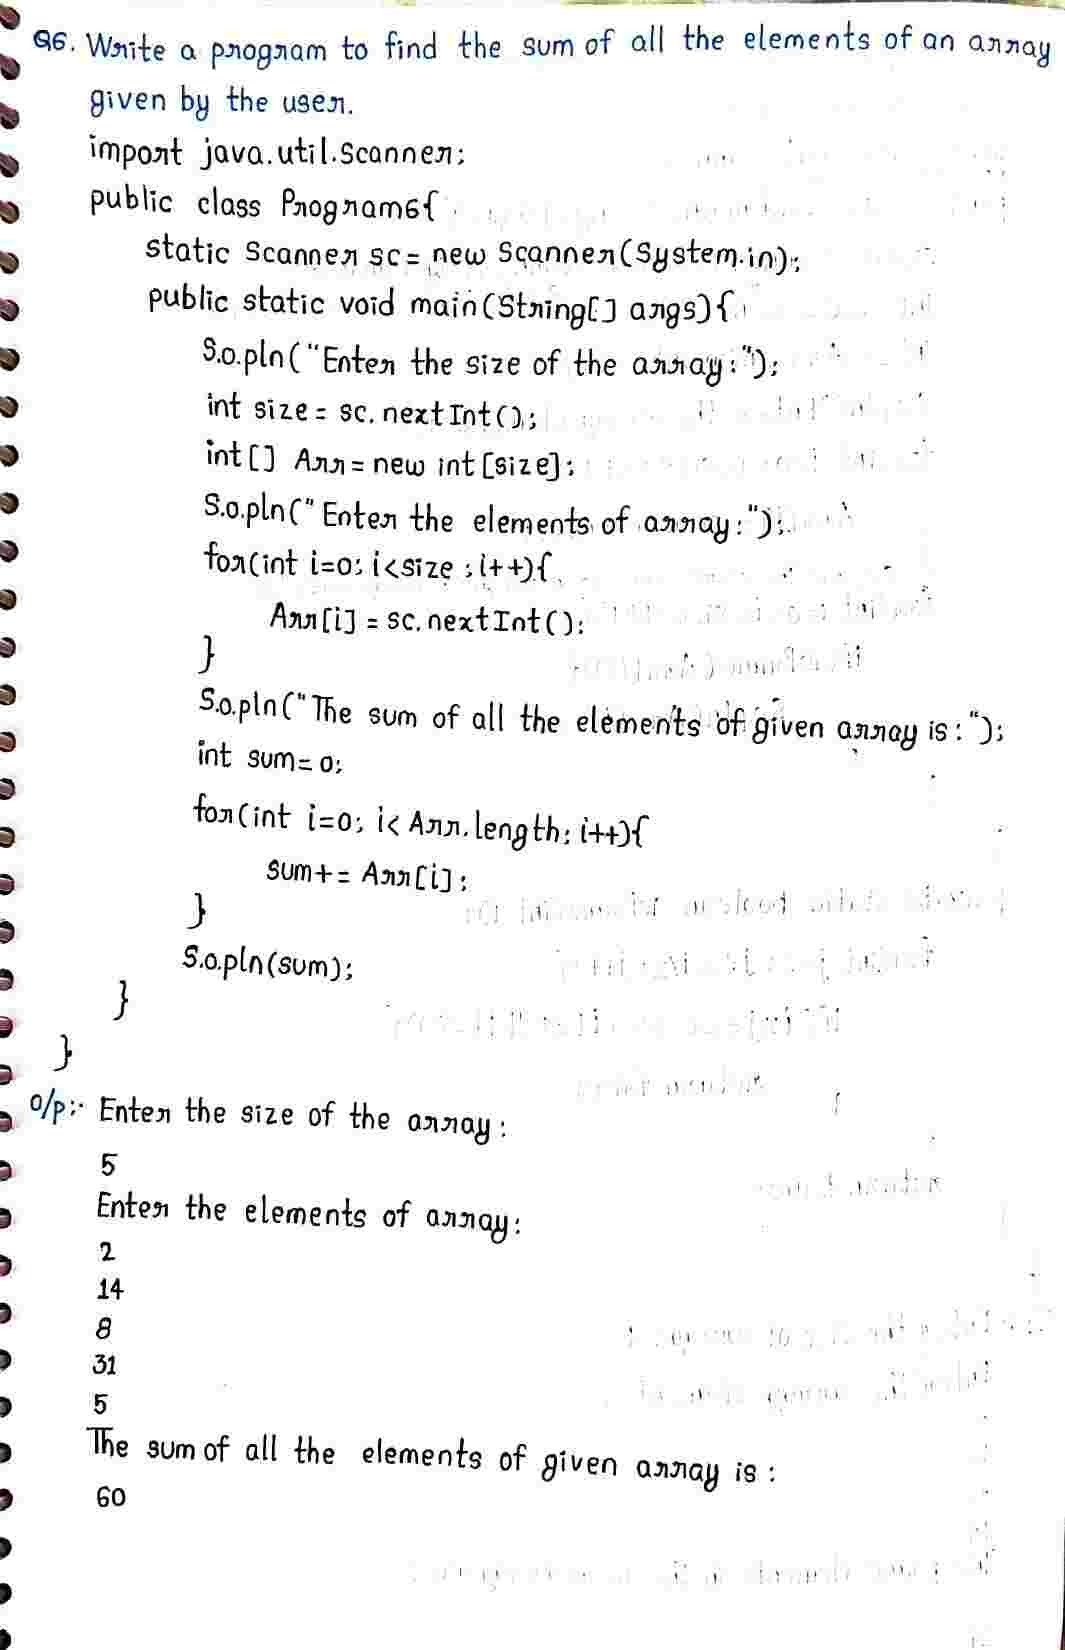 Q6. Write a program to find the sum of all the elements of an array
given by the user.
import java.util.Scanner;
public class Program6{
static Scanner sc = new Scanner(System.in);
public static void main(String[] args){
S.o.pln("Enter the size of the array:");
int size = sc.nextInt();
int[] Arr = new int[size];
S.o.pln("Enter the elements of array:");
for(int i=0; i<size; i++){
Arr[i] = sc.nextInt();
}
S.o.pln("The sum of all the elements of given array is:");
int sum=0;
for(int i=0; i<Arr.length; i++){
sum+= Arr[i];
}
S.o.pln(sum);
}
}
O/p:- Enter the size of the array:
5
Enter the elements of array:
2
14
8
31
5
The sum of all the elements of given array is:
60